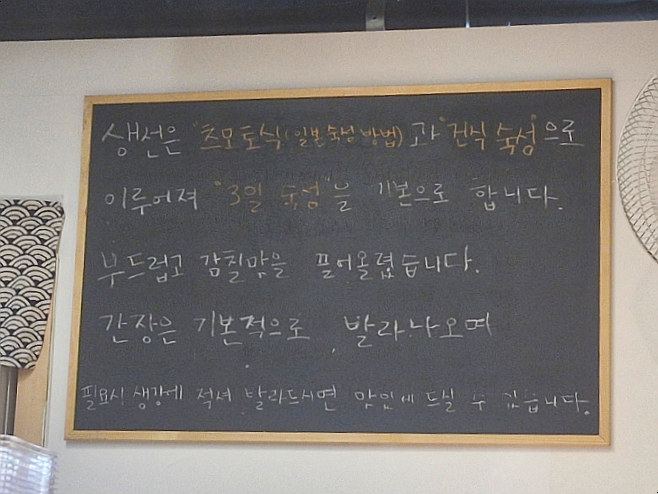 생선은 "츠모토식(일본숙성 방법)과 "건식 숙성"으로
이루어져 "3일 숙성"을 기본으로 합니다.
부드럽고 감칠맛을 끌어올렸습니다.
간장은 기본적으로 발라나오며
필요시 생강에 적셔 발라드시면 맛있게 드실 수 있습니다.